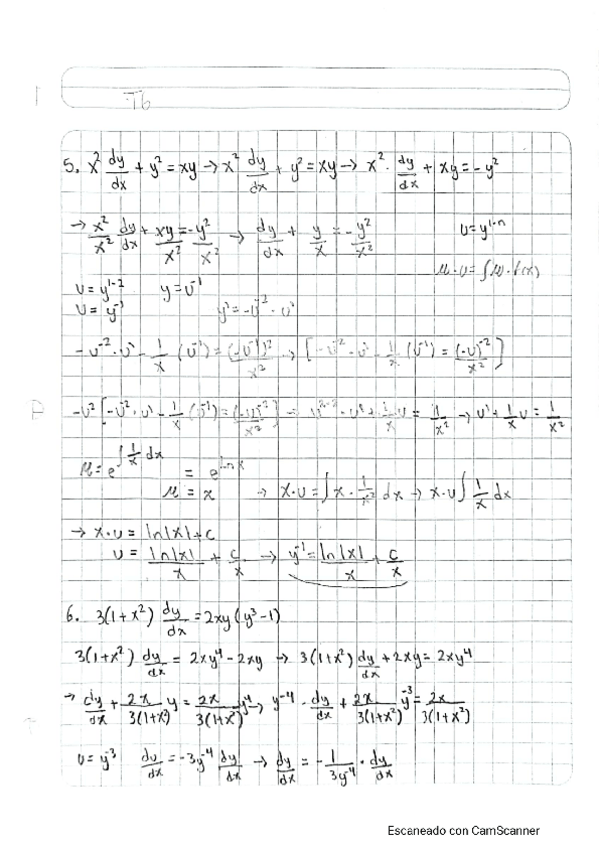 T6
5. x² dy/dx + y² = xy → x² dy/dx + y² = xy → x² · dy/dx + xy = -y²
→ x²/x² dy/dx + xy/x² = -y²/x² → dy/dx + y/x = -y²/x² u = y^(1-n)
μ·u = ∫μ·f(x)
u = y^(1-2) y = u^(-1)
u = y^(-1) y' = -u^(-2) · u'
-u^(-2)·u' - 1/x (u^(-1)) = (-u^(-1))²/x² → [-u^(-2)·u' - 1/x (u^(-1)) = (-u)^(-2)/x²]
-u² [-u^(-2)·u' - 1/x (u^(-1)) = (-u)^(-2)/x²] → u^(2-2)·u' + 1/x u = 1/x² → u' + 1/x u = 1/x²
μ = e^(∫ 1/x dx) = e^(ln x)
μ = x → x·u = ∫ x · 1/x² dx → x·u ∫ 1/x dx
→ x·u = ln|x| + c
u = ln|x|/x + c/x → y^(-1) = ln|x|/x + c/x
6. 3(1+x²) dy/dx = 2xy(y³-1)
3(1+x²) dy/dx = 2xy⁴ - 2xy → 3(1+x²) dy/dx + 2xy = 2xy⁴
→ dy/dx + 2x/3(1+x²) y = 2x/3(1+x²) y⁴, y^(-4) · dy/dx + 2x/3(1+x²) y^(-3) = 2x/3(1+x²)
u = y^(-3) du/dx = -3y^(-4) dy/dx → dy/dx = -1/3y^(-4) · dy/dx
Escaneado con CamScanner